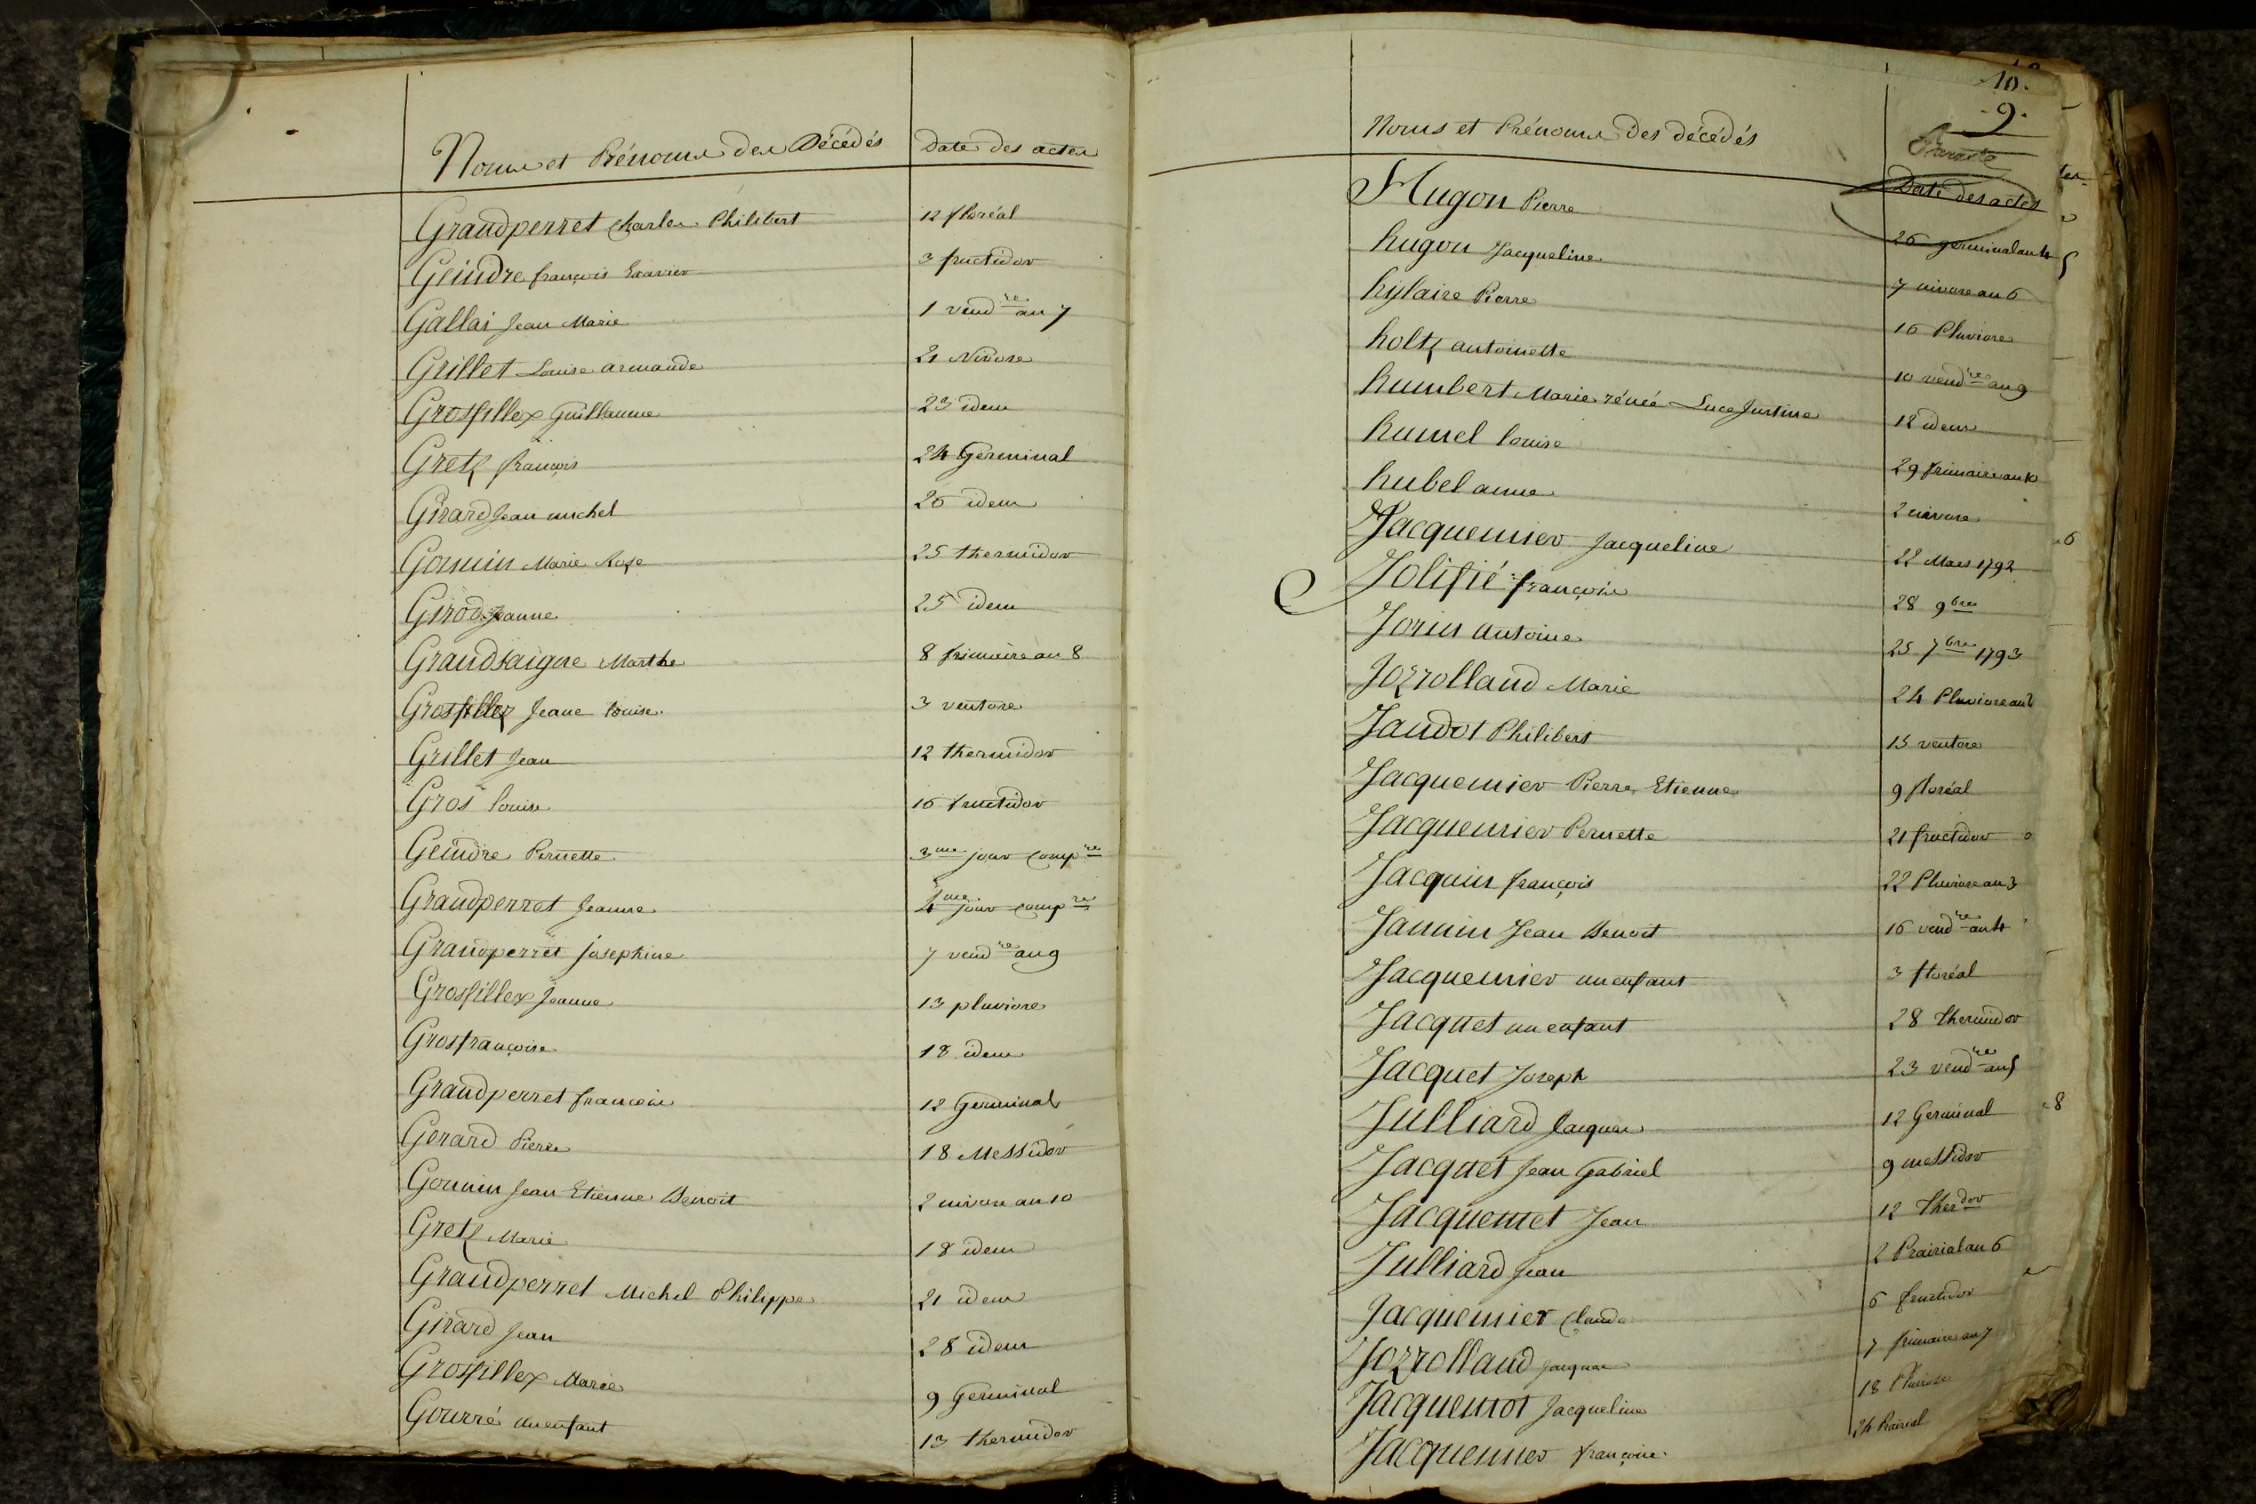 Noms et Prénoms des Décédés Date des actes
Grandperret Charles Philibert 12 floréal
Geindre françois Exavier 3 fructidor
Gallai Jean Marie 1 vend.re an 7
Grillet Louise armande 21 Nivose
Grosfillex Guillaume 23 idem
Gretz françois 24 Germinal
Girard Jean michel 26 idem
Gounin Marie Rose 25 thermidor
Girod Jeanne 25 idem
Grandsaigne Marthe 8 frimaire an 8
Grosfillex Jeane louise 3 ventose
Grillet Jean 12 thermidor
Gros louise 16 fructidor
Geindre Pernette 3me jour comp.re
Grandperret Jeanne jour comp.re
Grandperret josephine 7 vend.re an 9
Grosfillex Jeanne 13 pluviose
Gros françoise 18 idem
Grandperret françoise 12 Germinal
Gerard Pierre 18 Messidor
Gounin Jean Etienne Benoit 2 nivose an 10
Gretz Marie 18 idem
Grandperret Michel Philippe 21 idem
Girard Jean 28 idem
Grosfillex Marie 9 Germinal
Gourré un enfant 13 thermidor
10.
9.
Noms et Prénoms des décédés Date des actes
Hugon Pierre 26 germinal an 4
hugon Jacqueline 7 nivose an 6
hylaire Pierre 16 Pluviose
holtz antoinette 10 vend.re an 9
humbert Marie rénée Luce Justine 12 idem
humel louise 29 frimaire an 10
hubel anne 2 nivose
Jacquemier Jacqueline 22 Mars 1792
Jolifié françoise 28 9bre
Jorin Antoine 25 7bre 1793
Jozrolland Marie 24 Pluviose an 2
Jaudot Philibert 15 ventose
Jacquemier Pierre Etienne 9 floréal
Jacquemier Pernette 21 fructidor
Jacquin françois 22 Pluviose an 3
Janin Jean Benoit 16 vend.re an 4
Jacquemier un enfant 3 floréal
Jacquet un enfant 28 thermidor
Jacquet Joseph 23 vend.re an 5
Julliard Jacques 12 Germinal
Jacquet Jean Gabriel 9 messidor
Jacquemet Jean 12 Ther.dor
Julliard Jean 2 Prairial an 6
Jacquemier Claude 6 fructidor
Jozrolland jacques 7 frimaire an 7
Jacquemot Jacqueline 18 Pluviose
Jacquemier françoise 24 Prairial